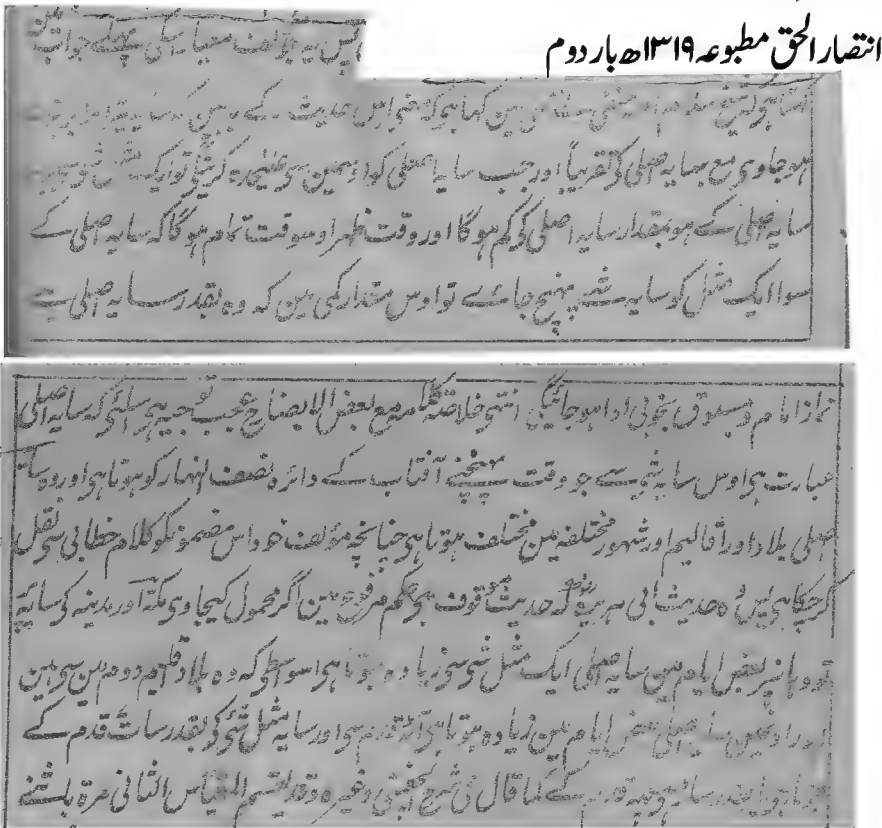 انتصار الحق مطبوعہ ۱۳۱۹ھ بار دوم
پس یہ مؤلف معیار اسکی پہلے جواب مین
کہا ہی کہ معنی اس حدیث کے
ہوجاوی مع سایہ اصلی کی تقریباً اور جب سایہ اصلی کو اوسمین سی علیحدہ کر تو ایک مثل
سایہ اصلی کے ہو بمقدار سایہ اصلی کی کم ہوگا اور وقت ظہر اوسوقت تمام ہوگا کہ سایہ اصلی کے
سوا ایک مثل کو سایہ شے پہنچ جاے تو اوس مقدار کی مین کہ وہ بقدر سایہ اصلی ہے
نماز امام و مسبوق بخوبی ادا ہوجائیگی انتہی خلاصۃ کلامہ مع بعض الایضاح عجب توجیہ ہی اسلئی کہ سایہ اصلی
عبارت ہی اوس سایہ شے سے جو وقت پہنچنے آفتاب کے دائرہ نصف النہار کو ہوتا ہی اور وہ سایہ
اصلی بلاد اور اقالیم اور شہور مختلفہ مین مختلف ہوتا ہی چنانچہ مؤلف خود اس مضمونکو کلام خطابی سی نقل
کرچکا ہی پس وہ حدیث ابی ہریرہ کہ حدیث موقوف ہی حکم مرفوع مین اگر محمول کیجاوی مکہ اور مدینہ کی سایہ
تو وہانپر بعض ایام مین سایہ اصلی ایک مثل شی سی زیادہ ہوتا ہی اسواسطی کہ وہ بلاد اقلیم دوم مین سی ہین
اور اونمین سایہ اصلی بعض ایام مین زیادہ ہوتا ہی آٹھ قدم سی اور سایہ مثل شئ کی بقدر سات قدم کے
ہوتا ہی کما قال فی شرح الچغمینی وغیرہ وقد یقسم المقیاس الثانی مرۃ باثنے